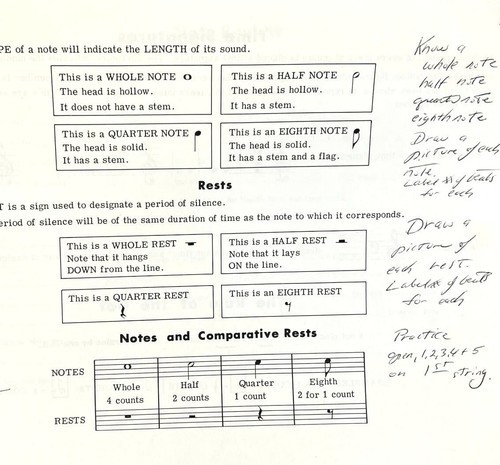 PE of a note will indicate the LENGTH of its sound.
This is a WHOLE NOTE
The head is hollow.
It does not have a stem.
This is a HALF NOTE
The head is hollow.
It has a stem.
This is a QUARTER NOTE
The head is solid.
It has a stem.
This is an EIGHTH NOTE
The head is solid.
It has a stem and a flag.
Rests
T is a sign used to designate a period of silence.
eriod of silence will be of the same duration of time as the note to which it corresponds.
This is a WHOLE REST
Note that it hangs
DOWN from the line.
This is a HALF REST
Note that it lays
ON the line.
This is a QUARTER REST
This is an EIGHTH REST
Notes and Comparative Rests
NOTES
Whole
4 counts
Half
2 counts
Quarter
1 count
Eighth
2 for 1 count
RESTS
Know a
whole note
half note
quarter note
eighth note
Draw a
picture of each
note.
Label # of beats
for each
Draw a
picture of
each rest.
Label # of beats
for each
Practice
open, 1, 2, 3, 4 + 5
on 1st string.